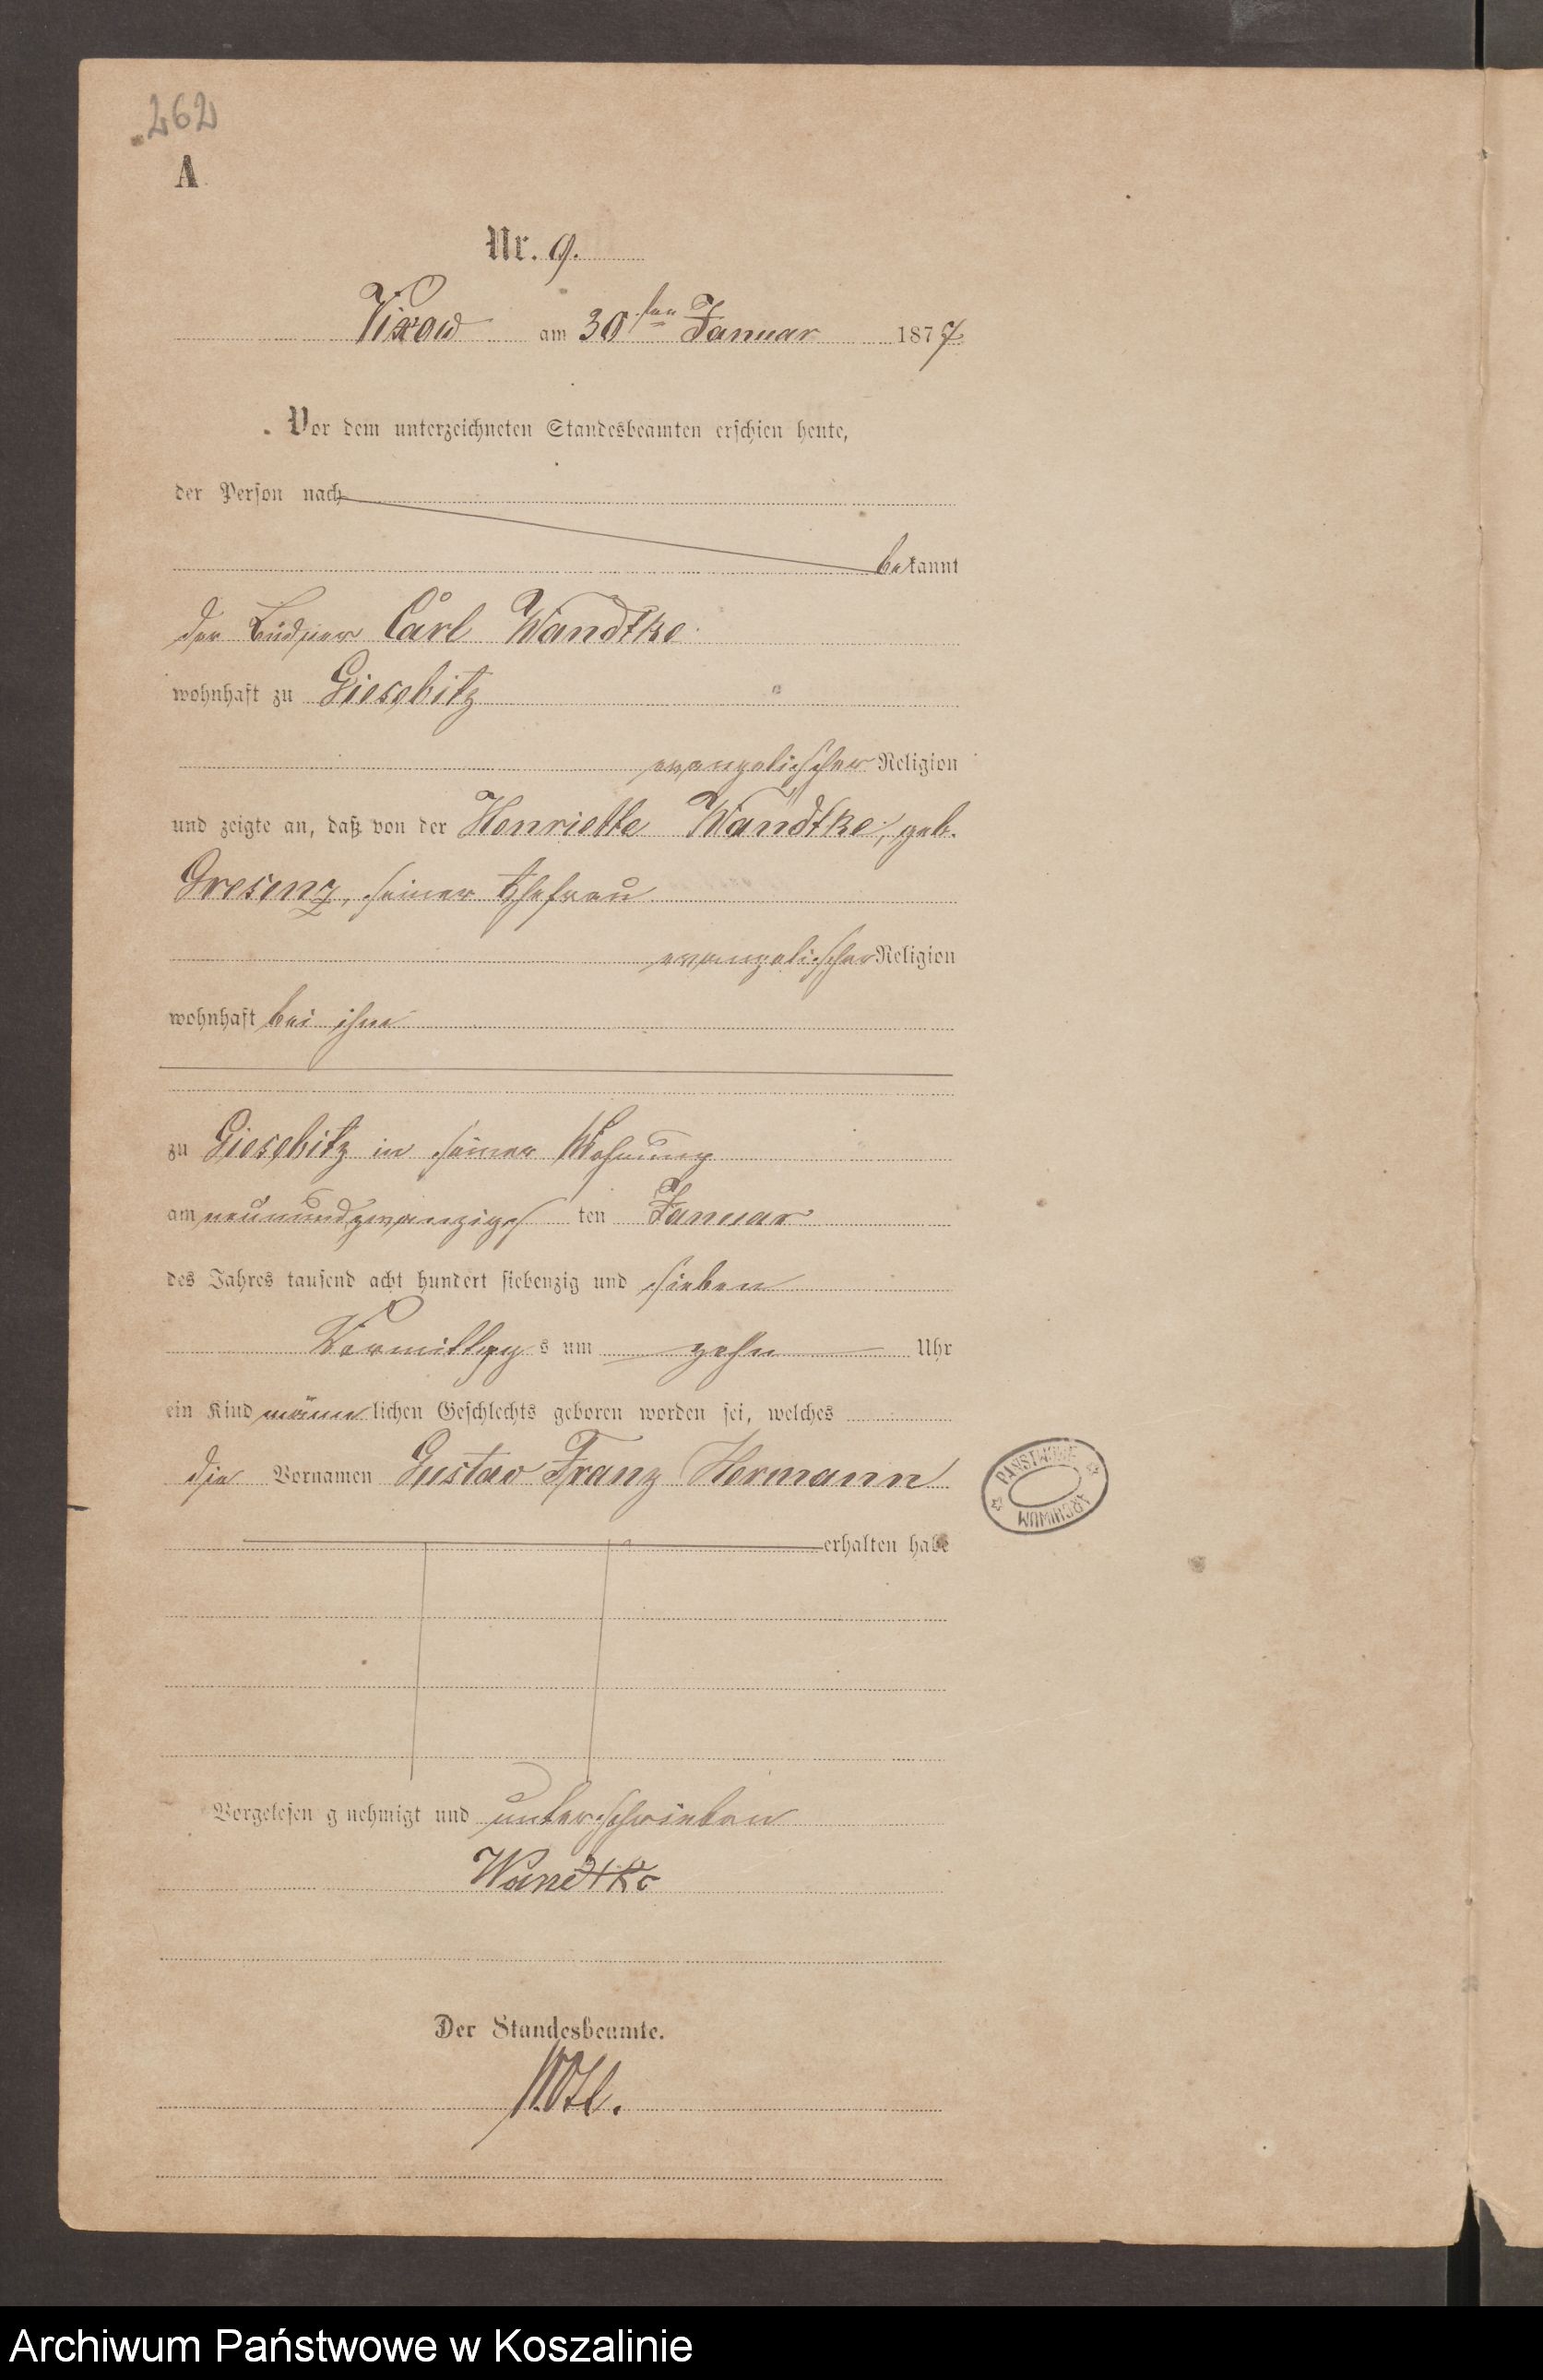 262
A
Nr. 9.
Vixow am 30ten Januar 1877
Vor dem unterzeichneten Standesbeamten erschien heute,
der Person nach
bekannt
der Büdner Carl Wandtke
wohnhaft zu Giesebitz
evangelischer Religion
und zeigte an, daß von der Henriette Wandtke, geb.
Gresenz, seiner Ehefrau
evangelischer Religion
wohnhaft bei ihm
zu Giesebitz in seiner Wohnung
am neunundzwanzigs ten Januar
des Jahres tausend acht hundert siebenzig und sieben
Vormittag s um zehn Uhr
ein Kind männ lichen Geschlechts geboren worden sei, welches
die Vornamen Gustav Franz Hermann
erhalten habe
PAŃSTWOWE ARCHIWUM
Vorgelesen g nehmigt und unterschrieben
Wandtke
Der Standesbeamte.
Archiwum Państwowe w Koszalinie